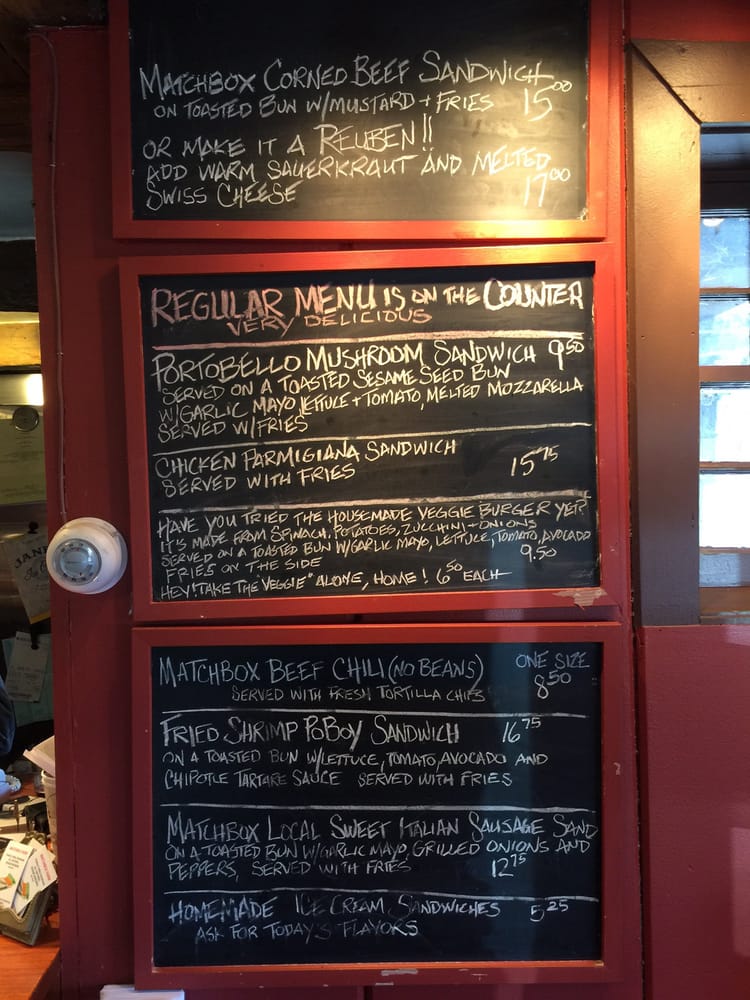 MATCHBOX CORNED BEEF SANDWICH
ON TOASTED BUN W/MUSTARD + FRIES 15 00
OR MAKE IT A REUBEN!!
ADD WARM SAUERKRAUT AND MELTED
SWISS CHEESE 17 00
REGULAR MENU IS ON THE COUNTER
VERY DELICIOUS
PORTOBELLO MUSHROOM SANDWICH 9 50
SERVED ON A TOASTED SESAME SEED BUN
W/GARLIC MAYO, LETTUCE + TOMATO, MELTED MOZZARELLA
SERVED W/FRIES
CHICKEN PARMIGIANA SANDWICH
SERVED WITH FRIES 15 75
HAVE YOU TRIED THE HOUSEMADE VEGGIE BURGER YET?
IT'S MADE FROM SPINACH, POTATOES, ZUCCHINI + ONIONS
SERVED ON A TOASTED BUN W/GARLIC MAYO, LETTUCE, TOMATO, AVOCADO
FRIES ON THE SIDE 9.50
HEY! TAKE THE "VEGGIE" ALONE, HOME! 6 50 EACH
MATCHBOX BEEF CHILI (NO BEANS) ONE SIZE
SERVED WITH FRESH TORTILLA CHIPS 8 50
FRIED SHRIMP POBOY SANDWICH 16 75
ON A TOASTED BUN W/LETTUCE, TOMATO, AVOCADO AND
CHIPOTLE TARTARE SAUCE SERVED WITH FRIES
MATCHBOX LOCAL SWEET ITALIAN SAUSAGE SAND
ON A TOASTED BUN W/GARLIC MAYO, GRILLED ONIONS AND
PEPPERS, SERVED WITH FRIES 12 75
HOMEMADE ICE CREAM SANDWICHES 5 25
ASK FOR TODAY'S FLAVORS